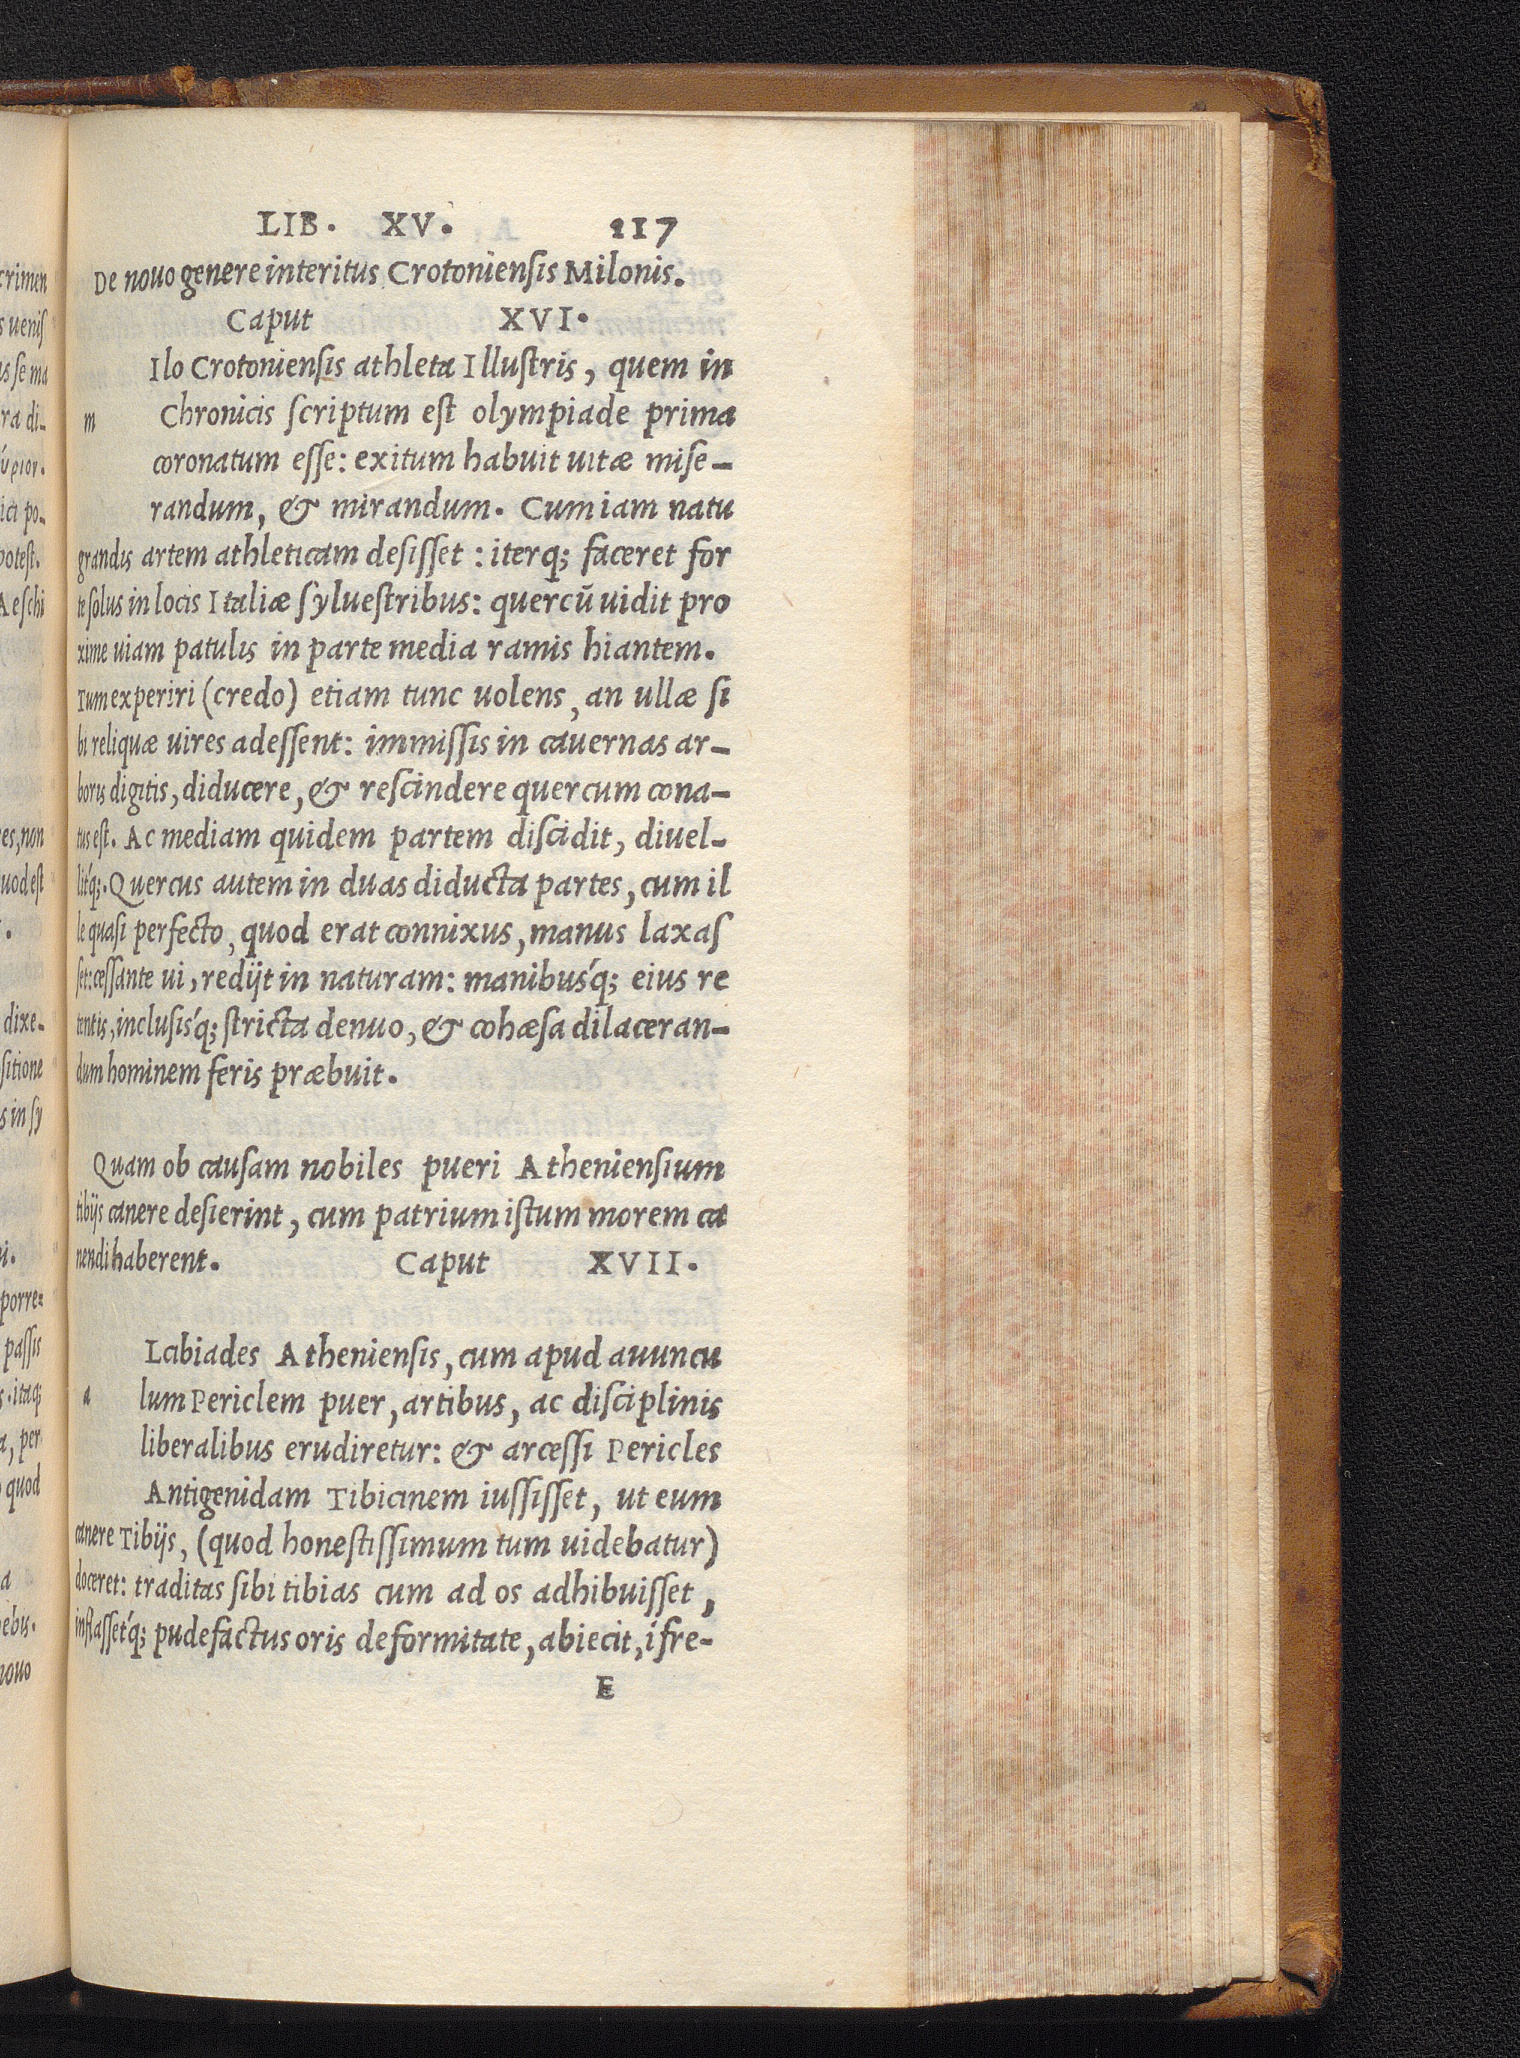 LIB. XV. 217
De nouo genere interitus Crotoniensis Milonis.
Caput XVI.
Ilo Crotoniensis athleta Illustris, quem in
m Chronicis scriptum est olympiade prima
coronatum esse: exitum habuit uitæ mise-
randum, & mirandum. Cum iam natu
grandis artem athleticam desisset: iterq; faceret for
te solus in locis Italiæ syluestribus: quercū uidit pro
xime uiam patulis in parte media ramis hiantem.
Tum experiri (credo) etiam tunc uolens, an ullæ si
bi reliquæ uires adessent: immissis in cauernas ar-
boris digitis, diducere, & rescindere quercum cona-
tus est. Ac mediam quidem partem discidit, diuel-
litq́;. Quercus autem in duas diducta partes, cum il
le quasi perfecto, quod erat connixus, manus laxas
set: cessante ui, redijt in naturam: manibusq́; eius re
tentis, inclusisq́; stricta denuo, & cohæsa dilaceran-
dum hominem feris præbuit.
Quam ob causam nobiles pueri Atheniensium
tibijs canere desierint, cum patrium istum morem ca
nendi haberent. Caput XVII.
Lcibiades Atheniensis, cum apud auuncu
a lum Periclem puer, artibus, ac disciplinis
liberalibus erudiretur: & arcessi Pericles
Antigenidam Tibicinem iussisset, ut eum
canere Tibijs, (quod honestissimum tum uidebatur)
doceret: traditas sibi tibias cum ad os adhibuisset,
inflassetq́; pudefactus oris deformitate, abiecit, ifre-
E
crimen
s uenis
us se ma
ra di-
ici po-
potest.
Aeschi
es, non
uod est
dixe-
sitione
s in sy
i.
porre-
passis
s. itaq;
a, per
quod
a
ebis.
nouo